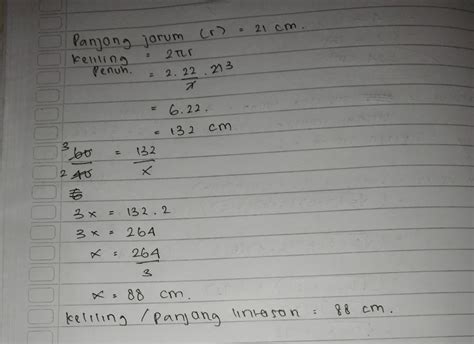 Panjang jarum (r) = 21 cm.
Keliling = 2πr
Penuh. = 2. 22/7 . 21 3
= 6.22.
= 132 cm
3 60/2 40 = 132/x
3x = 132.2
3x = 264
x = 264/3
x = 88 cm.
Keliling / Panjang lintasan = 88 cm.